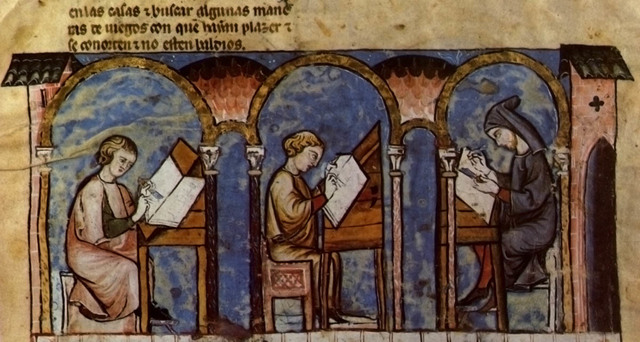 enlas casas ⁊ buscar algunas mane
ras de iuegos con que hayan plazer ⁊
se conorten ⁊ no esten baldios.